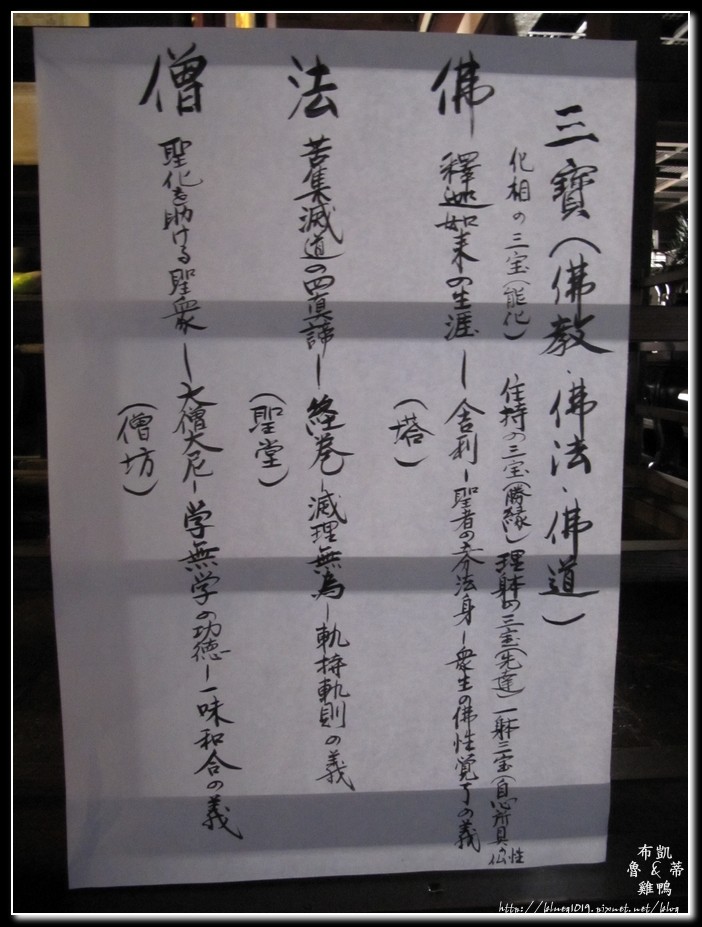 三寶(佛教・佛法・佛道)
化相の三宝(能化) 住持の三宝(勝縁) 理躰の三宝(先達) 一躰三宝(自心所具の仏性)
佛 釋迦如来の生涯ー舎利ー聖者の五分法身ー衆生の佛性覚了の義
(塔)
法 苦集滅道の四真諦ー経巻ー滅理無為ー軌持軌則の義
(聖堂)
僧 聖化を助ける聖衆ー大僧大尼ー学無学の功徳ー一味和合の義
(僧坊)
布凱
魯 & 蒂
雞鴨
http://blueq1019.pixnet.net/blog